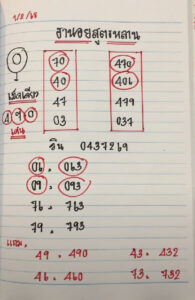 9/2/68
ฐานอยสูตรหลาน
0
70 470
40 401
เช็คเดี่ยว
47 479
4 9 0
03 037
เด่น
วิน 0437269
06 . 063
09 . 093
76 . 763
79 . 793
แถม.
49 . 490 43 . 432
46 . 460 73 . 732